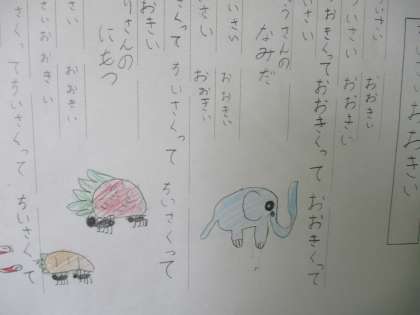 さい おおきい
いさい おおきい
いさい おおきい
おおきくって おおきくって おおきくって
いさい
うさんの なみだ
いさい おおきい
さい おおきい
さくって ちいさくって ちいさくって
おおきい
りさんの にもつ
さい おおきい
さい おおきい
さくって ちいさくって ちいさくって